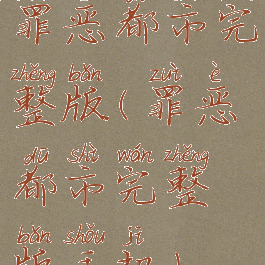 罪恶都市完
zhěng bǎn zuì è
整版(罪恶
dū shì wán zhěng
都市完整
bǎn shǒu jī
版手机)